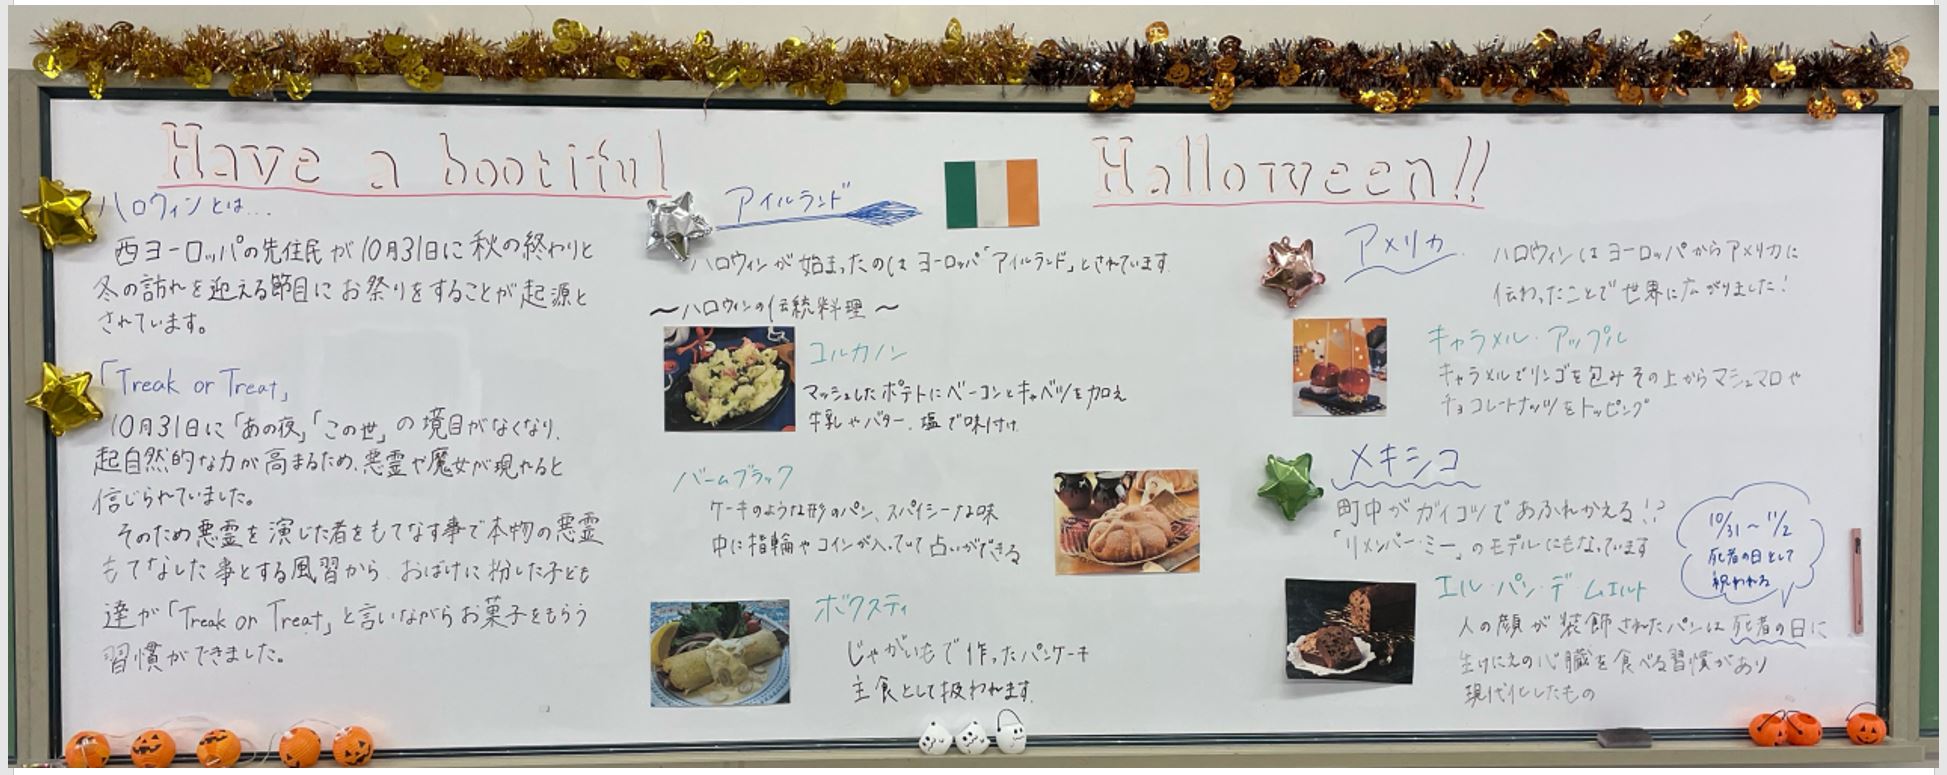 Have a bootiful Halloween!!
ハロウィンとは...
西ヨーロッパの先住民が10月31日に秋の終わりと
冬の訪れを迎える節目にお祭りをすることが起源と
されています。
「Treak or Treat」
10月31日に「あの夜」「この世」の境目がなくなり、
起自然的な力が高まるため、悪霊や魔女が現れると
信じられていました。
そのため悪霊を演じた者をもてなす事で本物の悪霊
もてなした事とする風習から、おばけに扮した子ども
達が「Treak or Treat」と言いながらお菓子をもらう
習慣ができました。
アイルランド
ハロウィンが始まったのはヨーロッパ「アイルランド」とされています。
〜ハロウィンの伝統料理〜
コルカノン
マッシュしたポテトにベーコンとキャベツを加え
牛乳やバター、塩で味付け
バームブラック
ケーキのような形のパン、スパイシーな味
中に指輪やコインが入っていて占いができる
ボクスティ
じゃがいもで作ったパンケーキ
主食として扱われます。
アメリカ
ハロウィンはヨーロッパからアメリカに
伝わったことで世界に広がりました!
キャラメル・アップル
キャラメルでリンゴを包みその上からマシュマロや
チョコレートナッツをトッピング
メキシコ
町中がガイコツであふれかえる!?
「リメンバー・ミー」のモデルにもなっています
10/31〜11/2
死者の日として
祝われる
エル・パン・デ・ムエルト
人の顔が装飾されたパンは死者の日に
生けにえの心臓を食べる習慣があり
現代化したもの